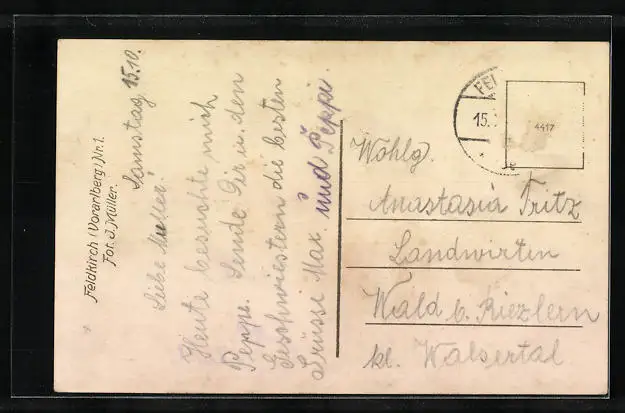 Feldkirch (Vorarlberg) Nr. 1.
Fot. J. Müller.
Samstag 15.10.
Liebe Mutter!
Heute besuchte mich
Peppe. Sende Dir u. den
Geschwistern die besten
Grüsse Max. und Peppi.
FEL
15.
4417
Wohlg.
Anastasia Fritz
Landwirtin
Wald b. Riezlern
kl. Walsertal